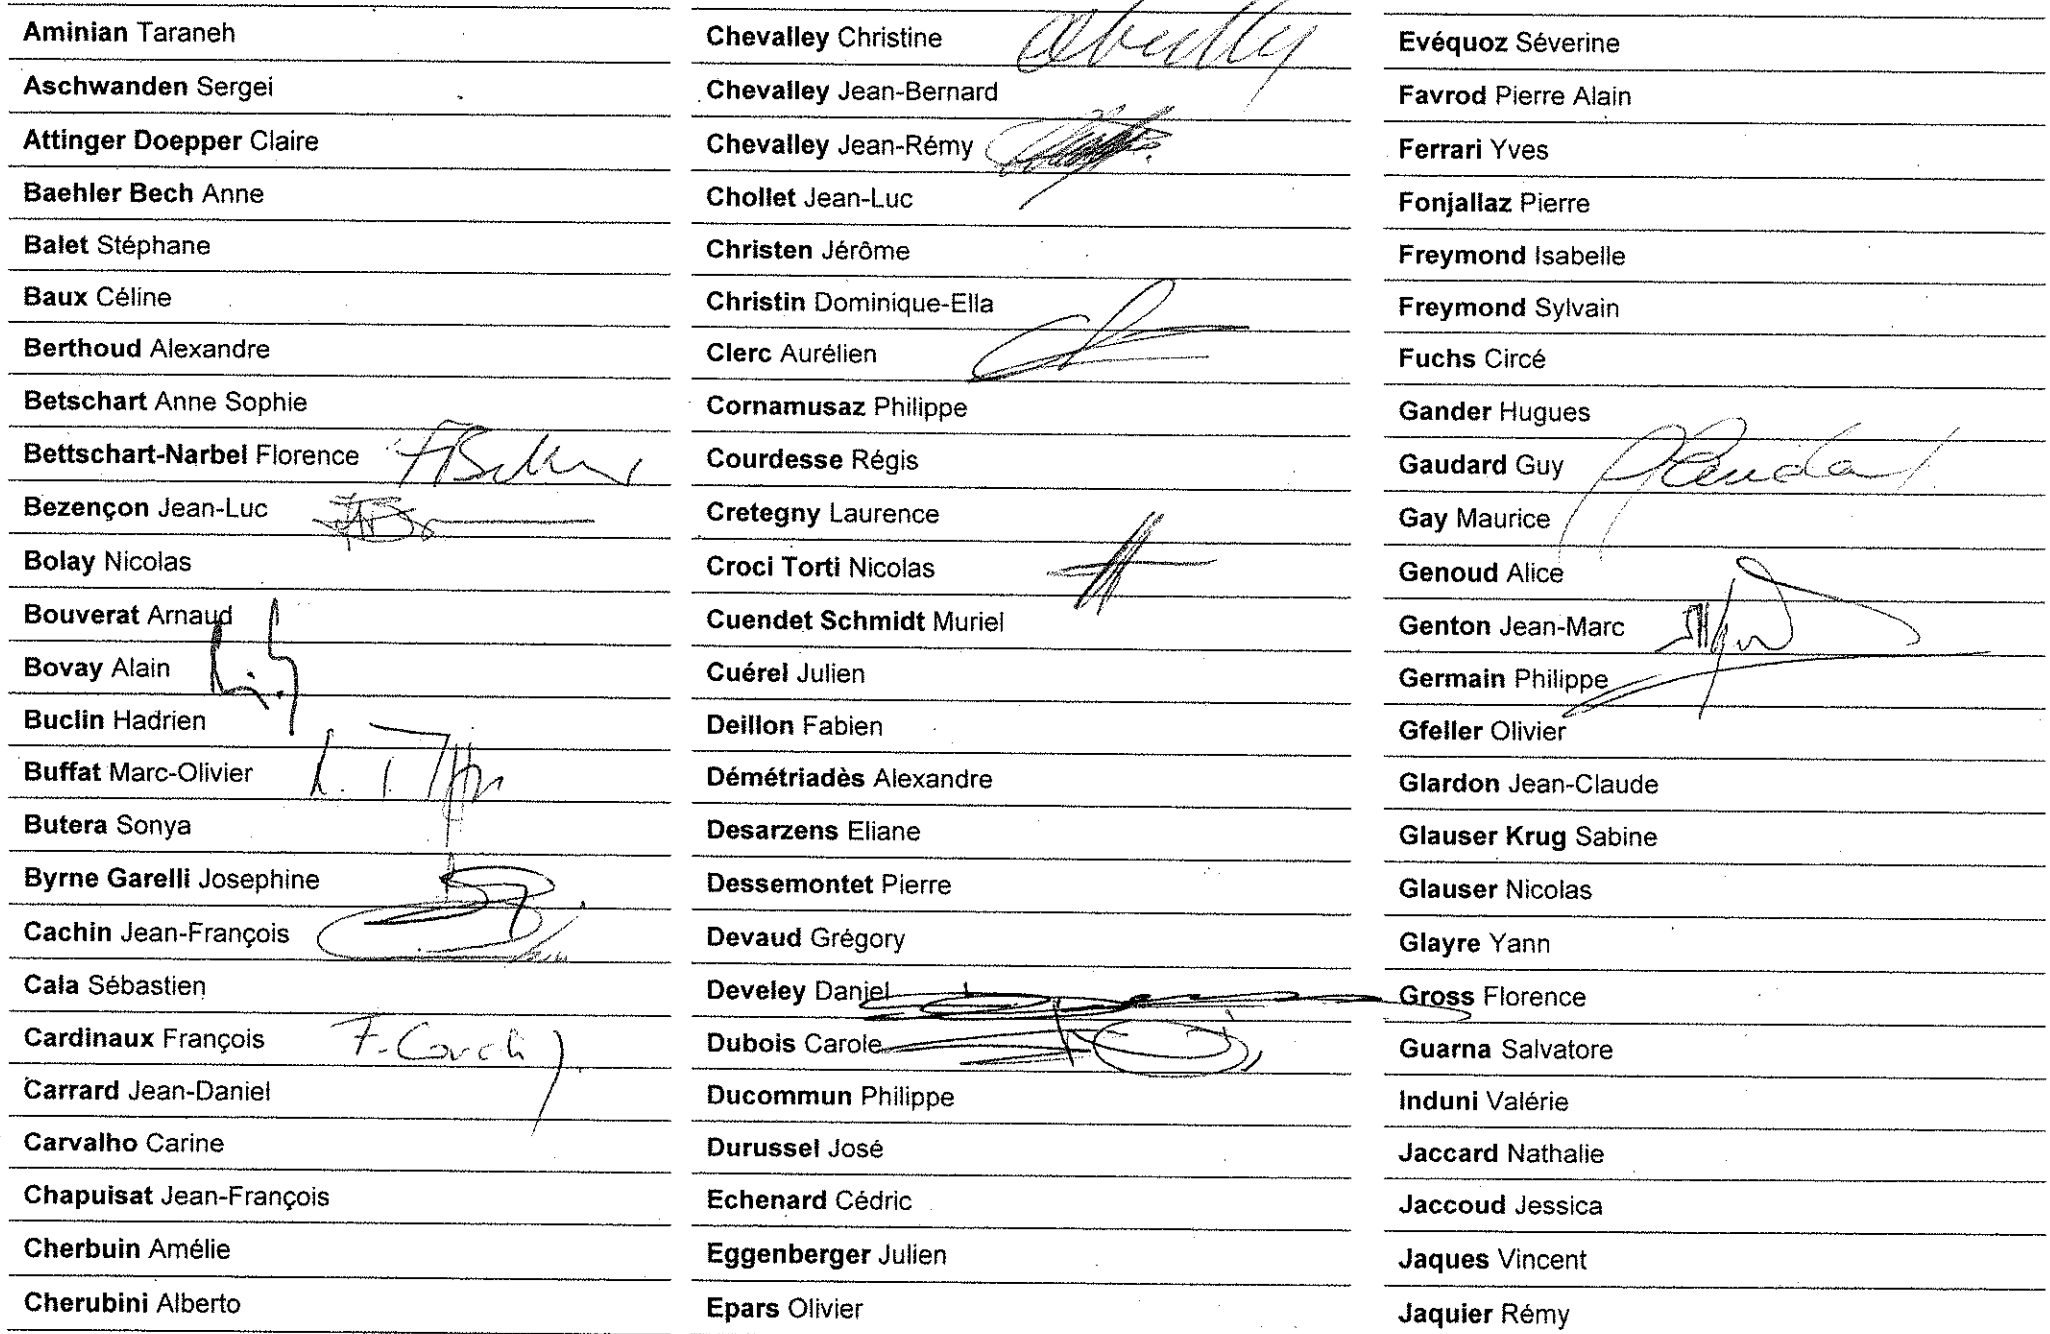 Aminian Taraneh
Aschwanden Sergei
Attinger Doepper Claire
Baehler Bech Anne
Balet Stéphane
Baux Céline
Berthoud Alexandre
Betschart Anne Sophie
Bettschart-Narbel Florence
Bezençon Jean-Luc
Bolay Nicolas
Bouverat Arnaud
Bovay Alain
Buclin Hadrien
Buffat Marc-Olivier
Butera Sonya
Byrne Garelli Josephine
Cachin Jean-François
Cala Sébastien
Cardinaux François
Carrard Jean-Daniel
Carvalho Carine
Chapuisat Jean-François
Cherbuin Amélie
Cherubini Alberto
Chevalley Christine
Chevalley Jean-Bernard
Chevalley Jean-Rémy
Chollet Jean-Luc
Christen Jérôme
Christin Dominique-Ella
Clerc Aurélien
Cornamusaz Philippe
Courdesse Régis
Cretegny Laurence
Croci Torti Nicolas
Cuendet Schmidt Muriel
Cuérel Julien
Deillon Fabien
Démétriadès Alexandre
Desarzens Eliane
Dessemontet Pierre
Devaud Grégory
Develey Daniel
Dubois Carole
Ducommun Philippe
Durussel José
Echenard Cédric
Eggenberger Julien
Epars Olivier
Evéquoz Séverine
Favrod Pierre Alain
Ferrari Yves
Fonjallaz Pierre
Freymond Isabelle
Freymond Sylvain
Fuchs Circé
Gander Hugues
Gaudard Guy
Gay Maurice
Genoud Alice
Genton Jean-Marc
Germain Philippe
Gfeller Olivier
Glardon Jean-Claude
Glauser Krug Sabine
Glauser Nicolas
Glayre Yann
Gross Florence
Guarna Salvatore
Induni Valérie
Jaccard Nathalie
Jaccoud Jessica
Jaques Vincent
Jaquier Rémy